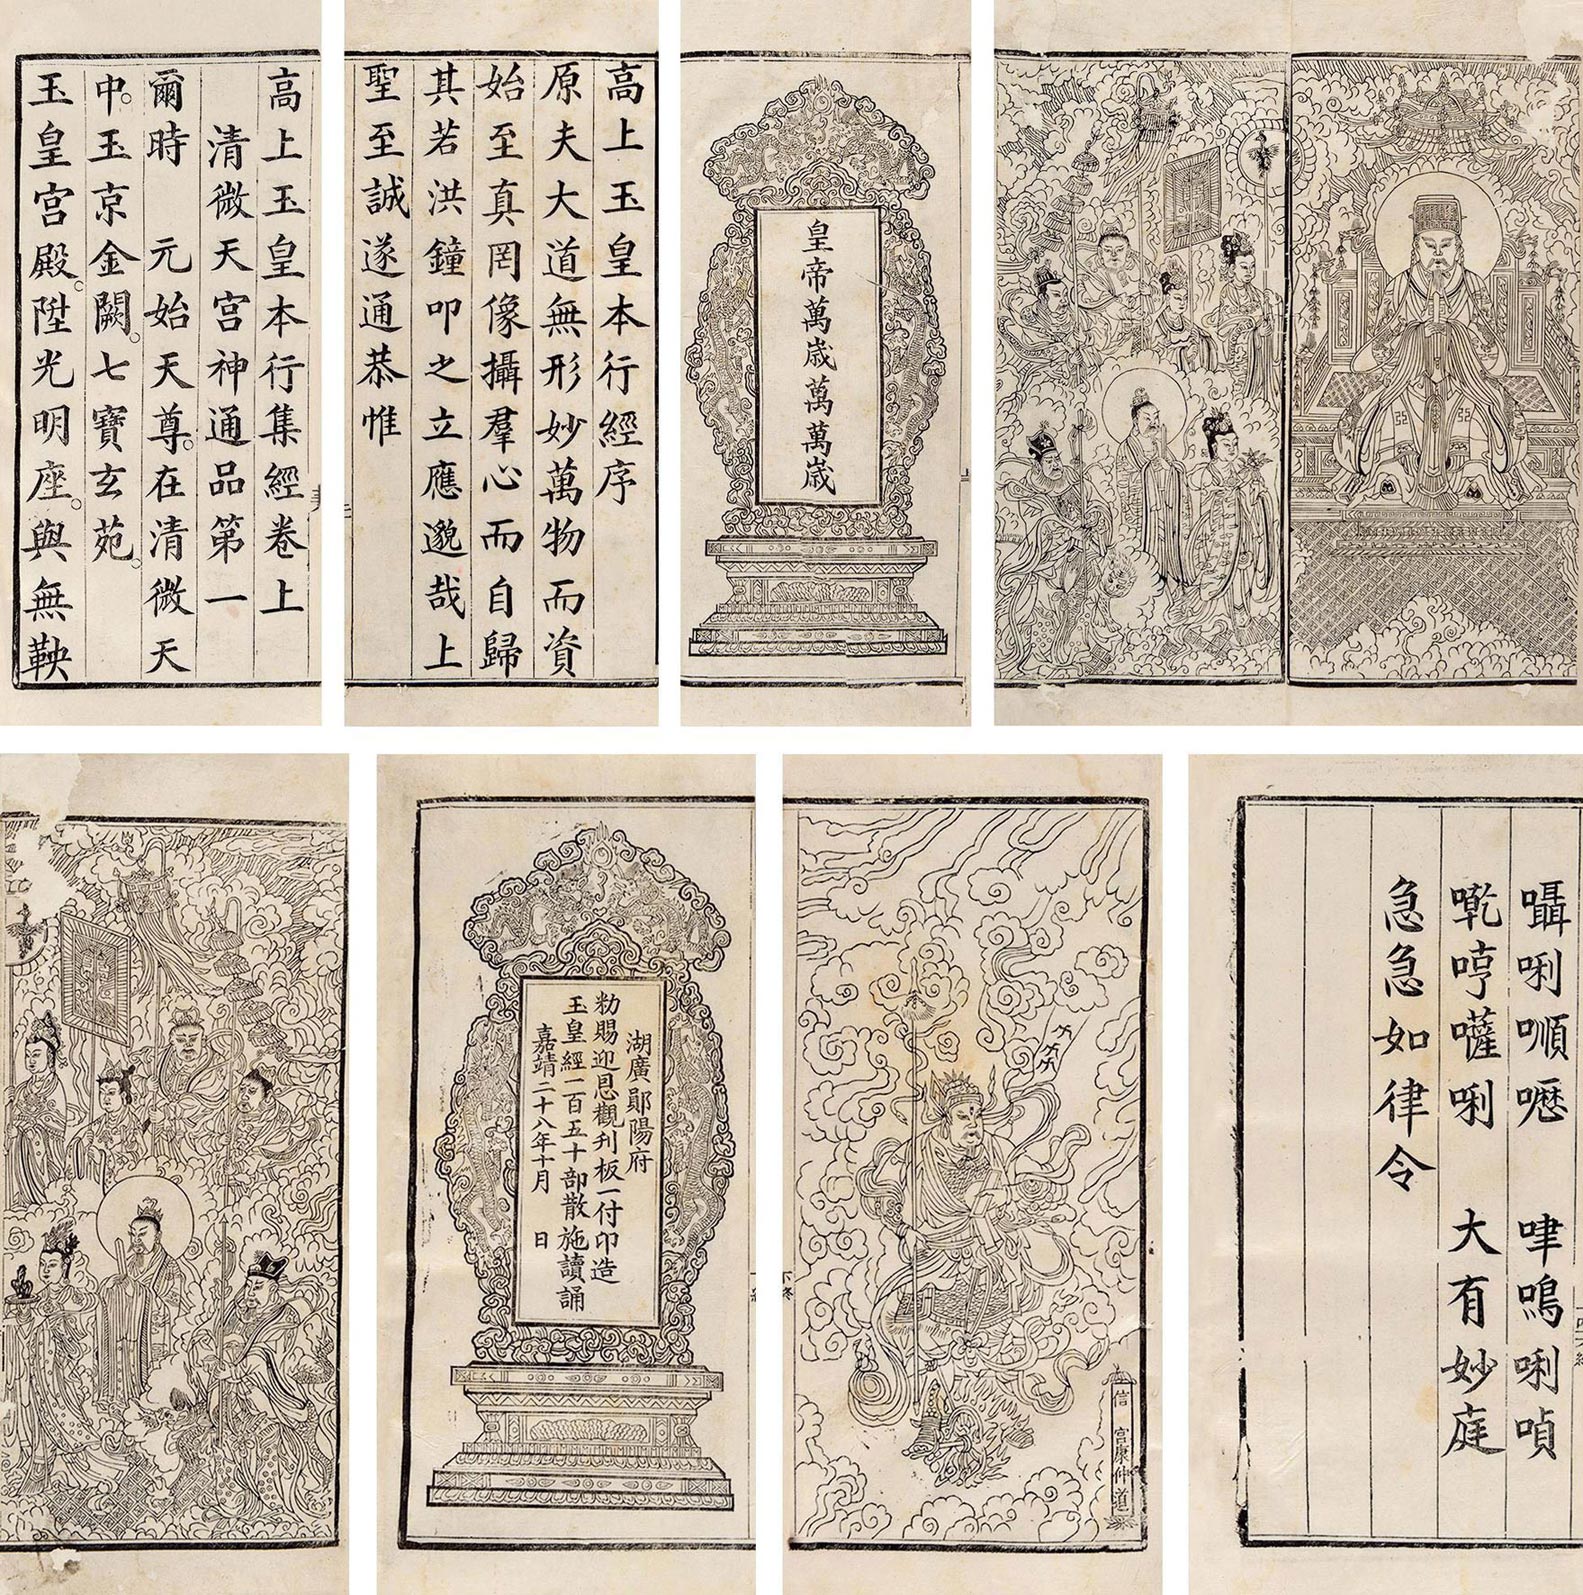 皇帝萬歲萬萬歲
高上玉皇本行經序
原夫大道無形妙萬物而資
始至真罔像攝羣心而自歸
其若洪鐘叩之立應邈哉上
聖至誠遂通恭惟
高上玉皇本行集經卷上
清微天宮神通品第一
爾時　元始天尊。在清微天
中。玉京金闕。七寶玄苑。
玉皇宮殿。陞光明座。與無鞅
囁唎嚦　嗚唎
哼唎　大有妙庭
急急如律令
信官康仲道
湖廣鄖陽府
勑賜迎恩觀刋板一付印造
玉皇經一百五十部散施讀誦
嘉靖二十八年十月　日